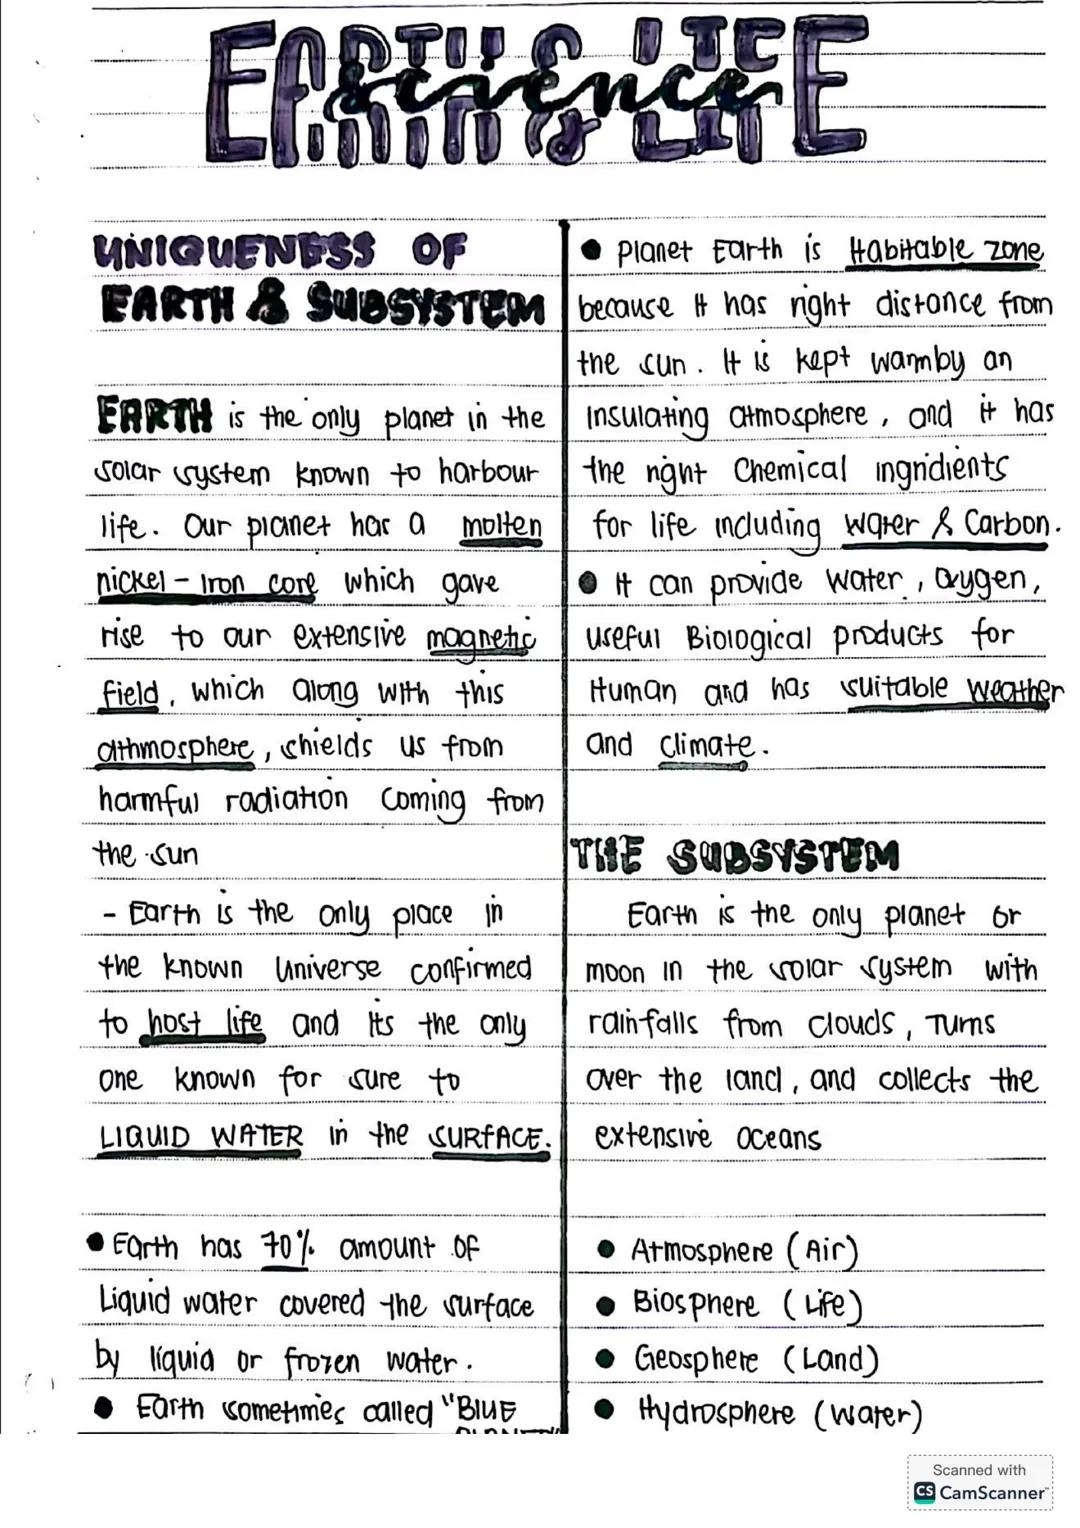 EARTH & LIFE
science
UNIQUENESS OF
EARTH & SUBSYSTEM
EARTH is the only planet in the
solar system known to harbour
life. Our planet has a molten
nickel - Iron core which gave
rise to our extensive magnetic
field, which along with this
athmosphere, shields us from
harmful radiation coming from
the sun
- Earth is the only place in
the known Universe confirmed
to host life and its the only
one known for sure to
LIQUID WATER in the SURFACE.
• Earth has 70% amount OF
Liquid water covered the surface
by liquid or frozen water.
• Earth sometimes called "BLUE
PLANET"
• Planet Earth is Habitable zone
because it has right distance from
the sun. It is kept warmby an
insulating atmosphere, and it has
the right Chemical ingridients
for life including Water & Carbon.
• It can provide water, Oxygen,
useful Biological products for
Human and has suitable weather
and climate.
THE SUBSYSTEM
Earth is the only planet or
moon in the solar system with
rainfalls from clouds, Turns
over the land, and collects the
extensive oceans
• Atmosphere (Air)
• Biosphere (Life)
• Geosphere (Land)
• Hydrosphere (Water)
Scanned with
CS CamScanner